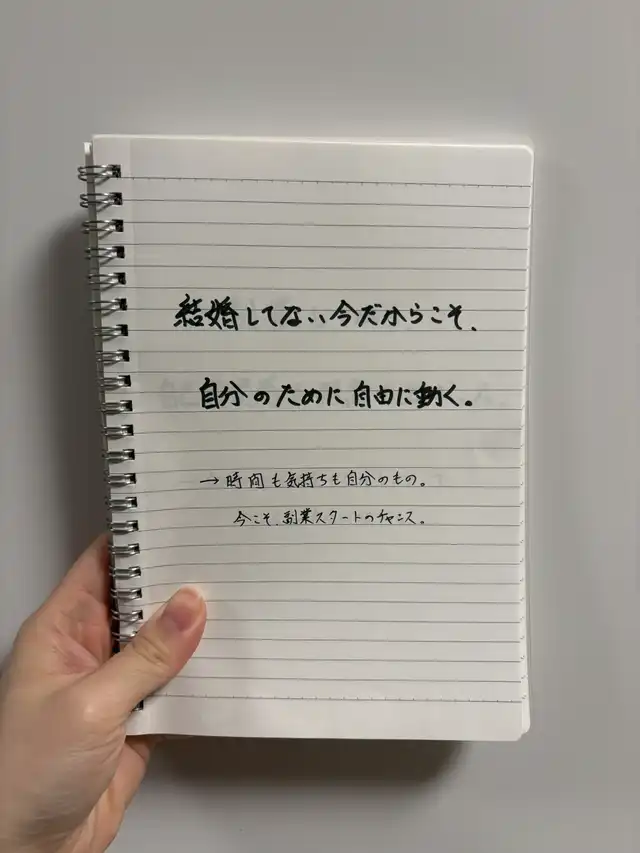 結婚してない今だからこそ、
自分のために自由に動く。
→時間も気持ちも自分のもの。
今こそ、副業スタートのチャンス。